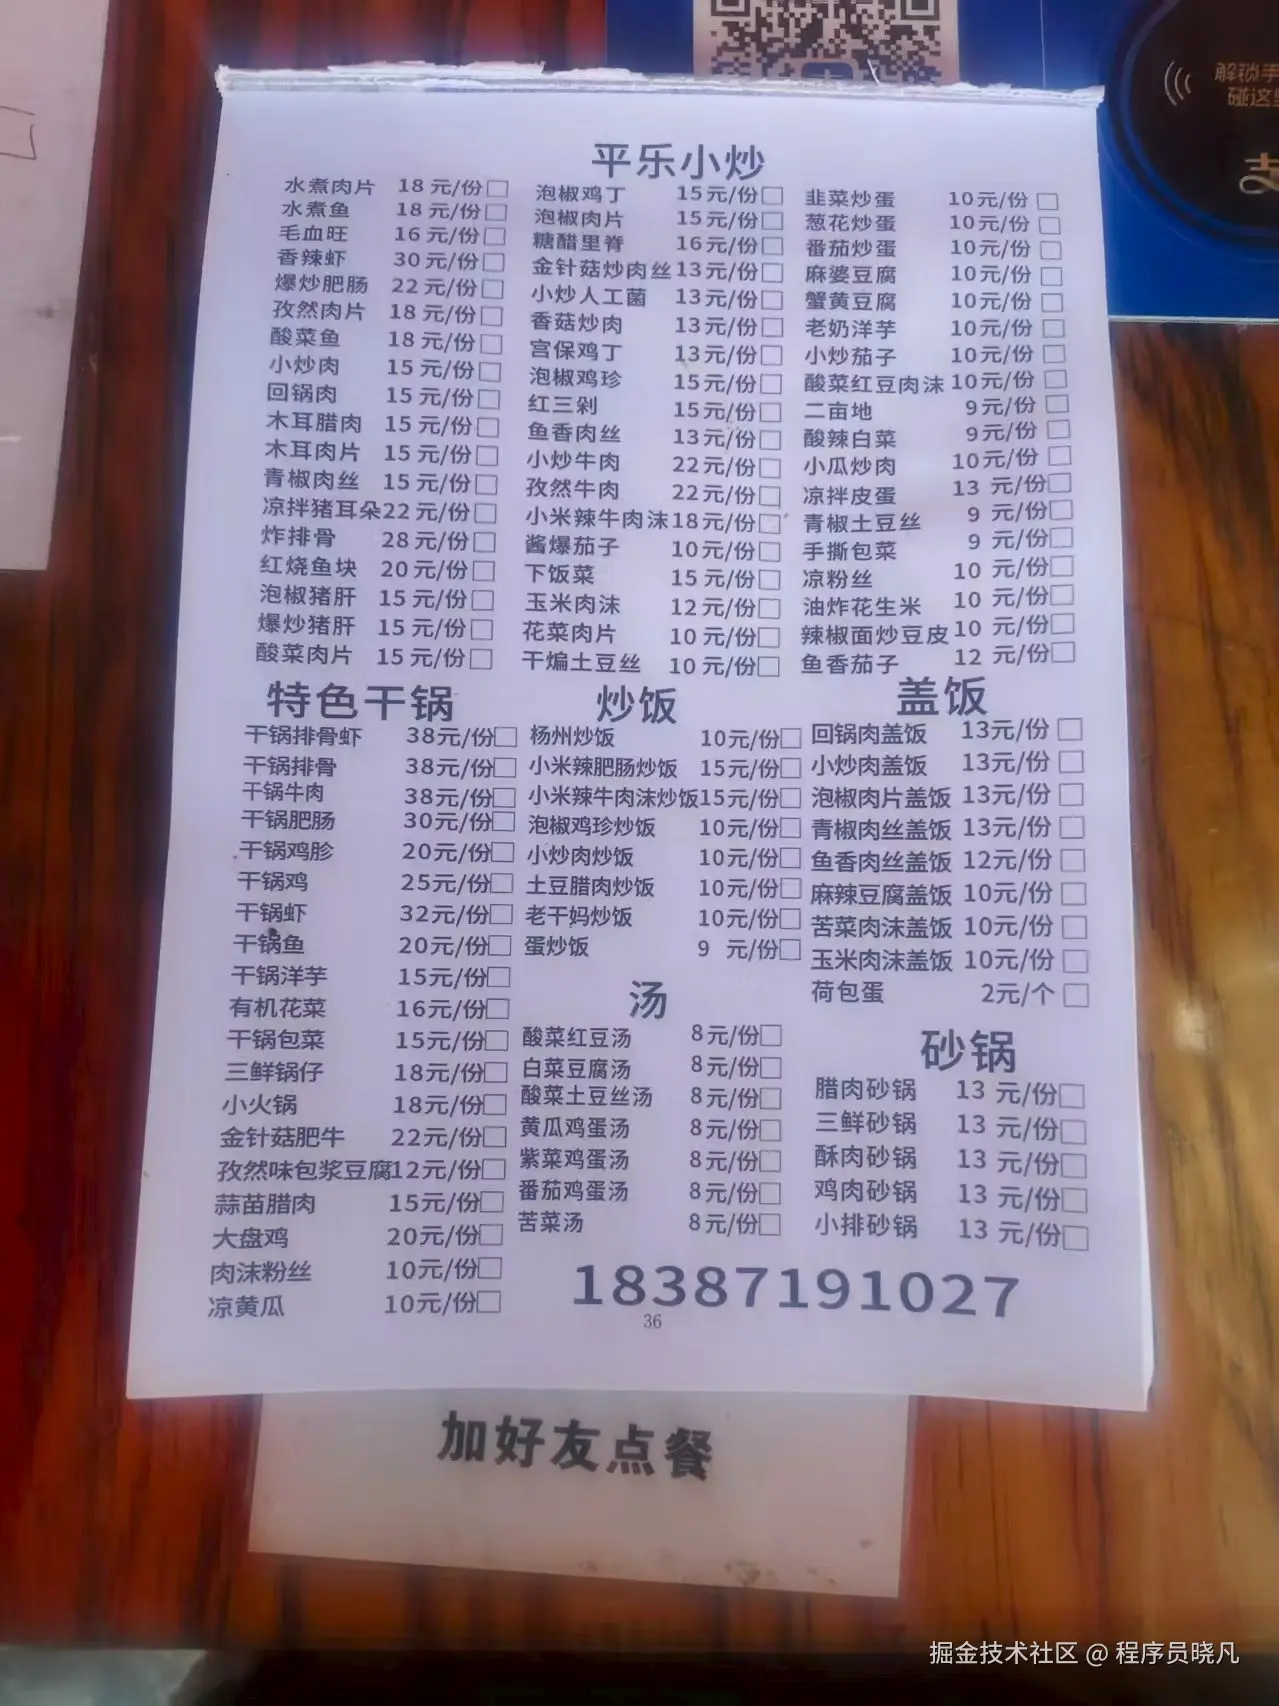 解锁手
碰这里
支
平乐小炒
水煮肉片 18 元/份
水煮鱼 18 元/份
毛血旺 16 元/份
香辣虾 30 元/份
爆炒肥肠 22 元/份
孜然肉片 18 元/份
酸菜鱼 18 元/份
小炒肉 15 元/份
回锅肉 15 元/份
木耳腊肉 15 元/份
木耳肉片 15 元/份
青椒肉丝 15 元/份
凉拌猪耳朵22 元/份
炸排骨 28 元/份
红烧鱼块 20 元/份
泡椒猪肝 15 元/份
爆炒猪肝 15 元/份
酸菜肉片 15 元/份
泡椒鸡丁 15元/份
泡椒肉片 15元/份
糖醋里脊 16元/份
金针菇炒肉丝13元/份
小炒人工菌 13元/份
香菇炒肉 13元/份
宫保鸡丁 13元/份
泡椒鸡珍 15元/份
红三剁 15元/份
鱼香肉丝 13元/份
小炒牛肉 22元/份
孜然牛肉 22元/份
小米辣牛肉沫18元/份
酱爆茄子 10元/份
下饭菜 15元/份
玉米肉沫 12元/份
花菜肉片 10元/份
干煸土豆丝 10元/份
韭菜炒蛋 10元/份
葱花炒蛋 10元/份
番茄炒蛋 10元/份
麻婆豆腐 10元/份
蟹黄豆腐 10元/份
老奶洋芋 10元/份
小炒茄子 10元/份
酸菜红豆肉沫 10元/份
二亩地 9元/份
酸辣白菜 9元/份
小瓜炒肉 10元/份
凉拌皮蛋 13 元/份
青椒土豆丝 9 元/份
手撕包菜 9 元/份
凉粉丝 10 元/份
油炸花生米 10 元/份
辣椒面炒豆皮 10 元/份
鱼香茄子 12 元/份
特色干锅
干锅排骨虾 38元/份
干锅排骨 38元/份
干锅牛肉 38元/份
干锅肥肠 30元/份
干锅鸡胗 20元/份
干锅鸡 25元/份
干锅虾 32元/份
干锅鱼 20元/份
干锅洋芋 15元/份
有机花菜 16元/份
干锅包菜 15元/份
三鲜锅仔 18元/份
小火锅 18元/份
金针菇肥牛 22元/份
孜然味包浆豆腐12元/份
蒜苗腊肉 15元/份
大盘鸡 20元/份
肉沫粉丝 10元/份
凉黄瓜 10元/份
炒饭
杨州炒饭 10元/份
小米辣肥肠炒饭 15元/份
小米辣牛肉沫炒饭15元/份
泡椒鸡珍炒饭 10元/份
小炒肉炒饭 10元/份
土豆腊肉炒饭 10元/份
老干妈炒饭 10元/份
蛋炒饭 9 元/份
汤
酸菜红豆汤 8元/份
白菜豆腐汤 8元/份
酸菜土豆丝汤 8元/份
黄瓜鸡蛋汤 8元/份
紫菜鸡蛋汤 8元/份
番茄鸡蛋汤 8元/份
苦菜汤 8元/份
盖饭
回锅肉盖饭 13元/份
小炒肉盖饭 13元/份
泡椒肉片盖饭 13元/份
青椒肉丝盖饭 13元/份
鱼香肉丝盖饭 12元/份
麻辣豆腐盖饭 10元/份
苦菜肉沫盖饭 10元/份
玉米肉沫盖饭 10元/份
荷包蛋 2元/个
砂锅
腊肉砂锅 13 元/份
三鲜砂锅 13 元/份
酥肉砂锅 13 元/份
鸡肉砂锅 13 元/份
小排砂锅 13 元/份
18387191027
36
加好友点餐
掘金技术社区 @ 程序员晓凡